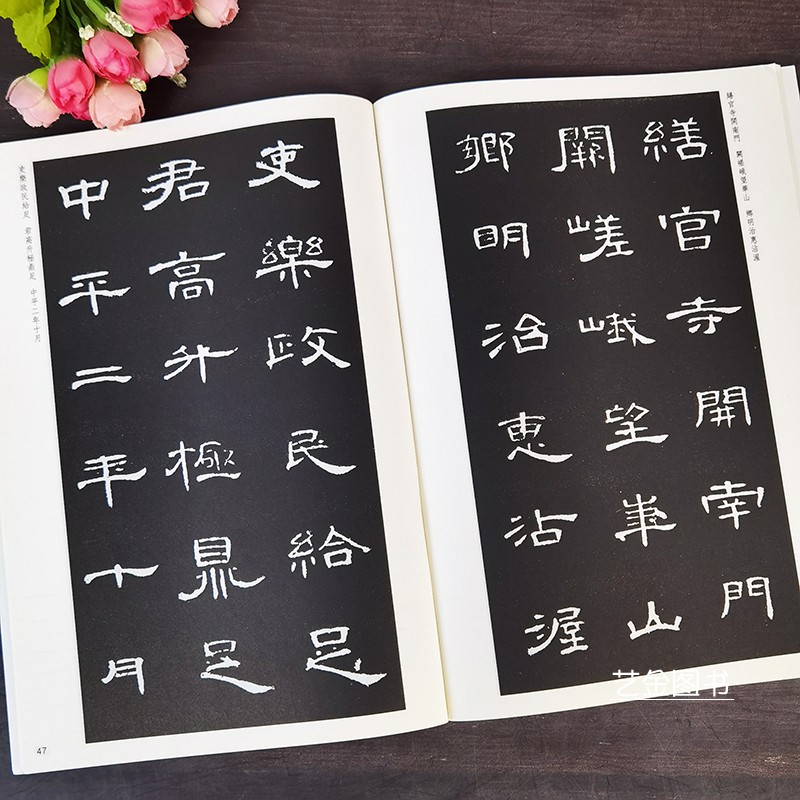 繕官寺開南門　闕嵯峨望華山　鄉明治惠沾渥
繕官寺開南門
闕嵯峨望華山
鄉明治惠沾渥
吏樂政民給足
君高升極鼎足
中平二年十月
吏樂政民給足　君高升極鼎足　中平二年十月
47
艺金图书